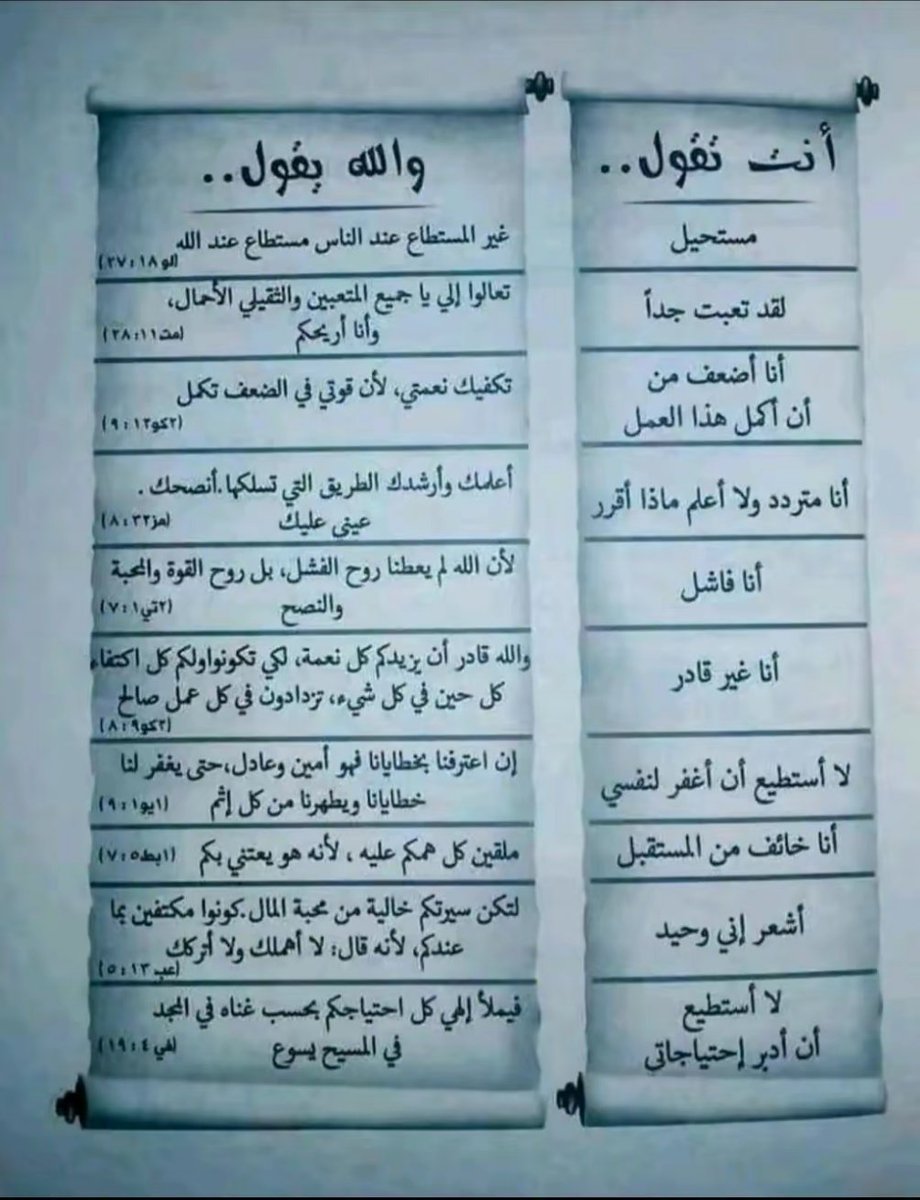 أنت تقول..
مستحيل
لقد تعبت جداً
أنا أضعف من
أن أكمل هذا العمل
أنا متردد ولا أعلم ماذا أقرر
أنا فاشل
أنا غير قادر
لا أستطيع أن أغفر لنفسي
أنا خائف من المستقبل
أشعر إني وحيد
لا أستطيع
أن أدبر إحتياجاتي
والله يقول..
غير المستطاع عند الناس مستطاع عند الله
(لو١٨:٢٧)
تعالوا إلي يا جميع المتعبين والثقيلي الأحمال،
وأنا أريحكم (مت١١:٢٨)
تكفيك نعمتي، لأن قوتي في الضعف تكمل
(٢كو١٢:٩)
أعلمك وأرشدك الطريق التي تسلكها.أنصحك .
عيني عليك (مز٣٢:٨)
لأن الله لم يعطنا روح الفشل، بل روح القوة والمحبة
والنصح (٢تي١:٧)
والله قادر أن يزيدكم كل نعمة، لكي تكونواولكم كل اكتفاء
كل حين في كل شيء، تزدادون في كل عمل صالح
(٢كو٩:٨)
إن اعترفنا بخطايانا فهو أمين وعادل،حتى يغفر لنا
خطايانا ويطهرنا من كل إثم (١يو١:٩)
ملقين كل همكم عليه ، لأنه هو يعتني بكم (١بط٥:٧)
لتكن سيرتكم خالية من محبة المال.كونوا مكتفين بما
عندكم، لأنه قال: لا أهملك ولا أتركك
(عب١٣:٥)
فيملأ إلهي كل احتياجكم بحسب غناه في المجد
في المسيح يسوع (في٤:١٩)